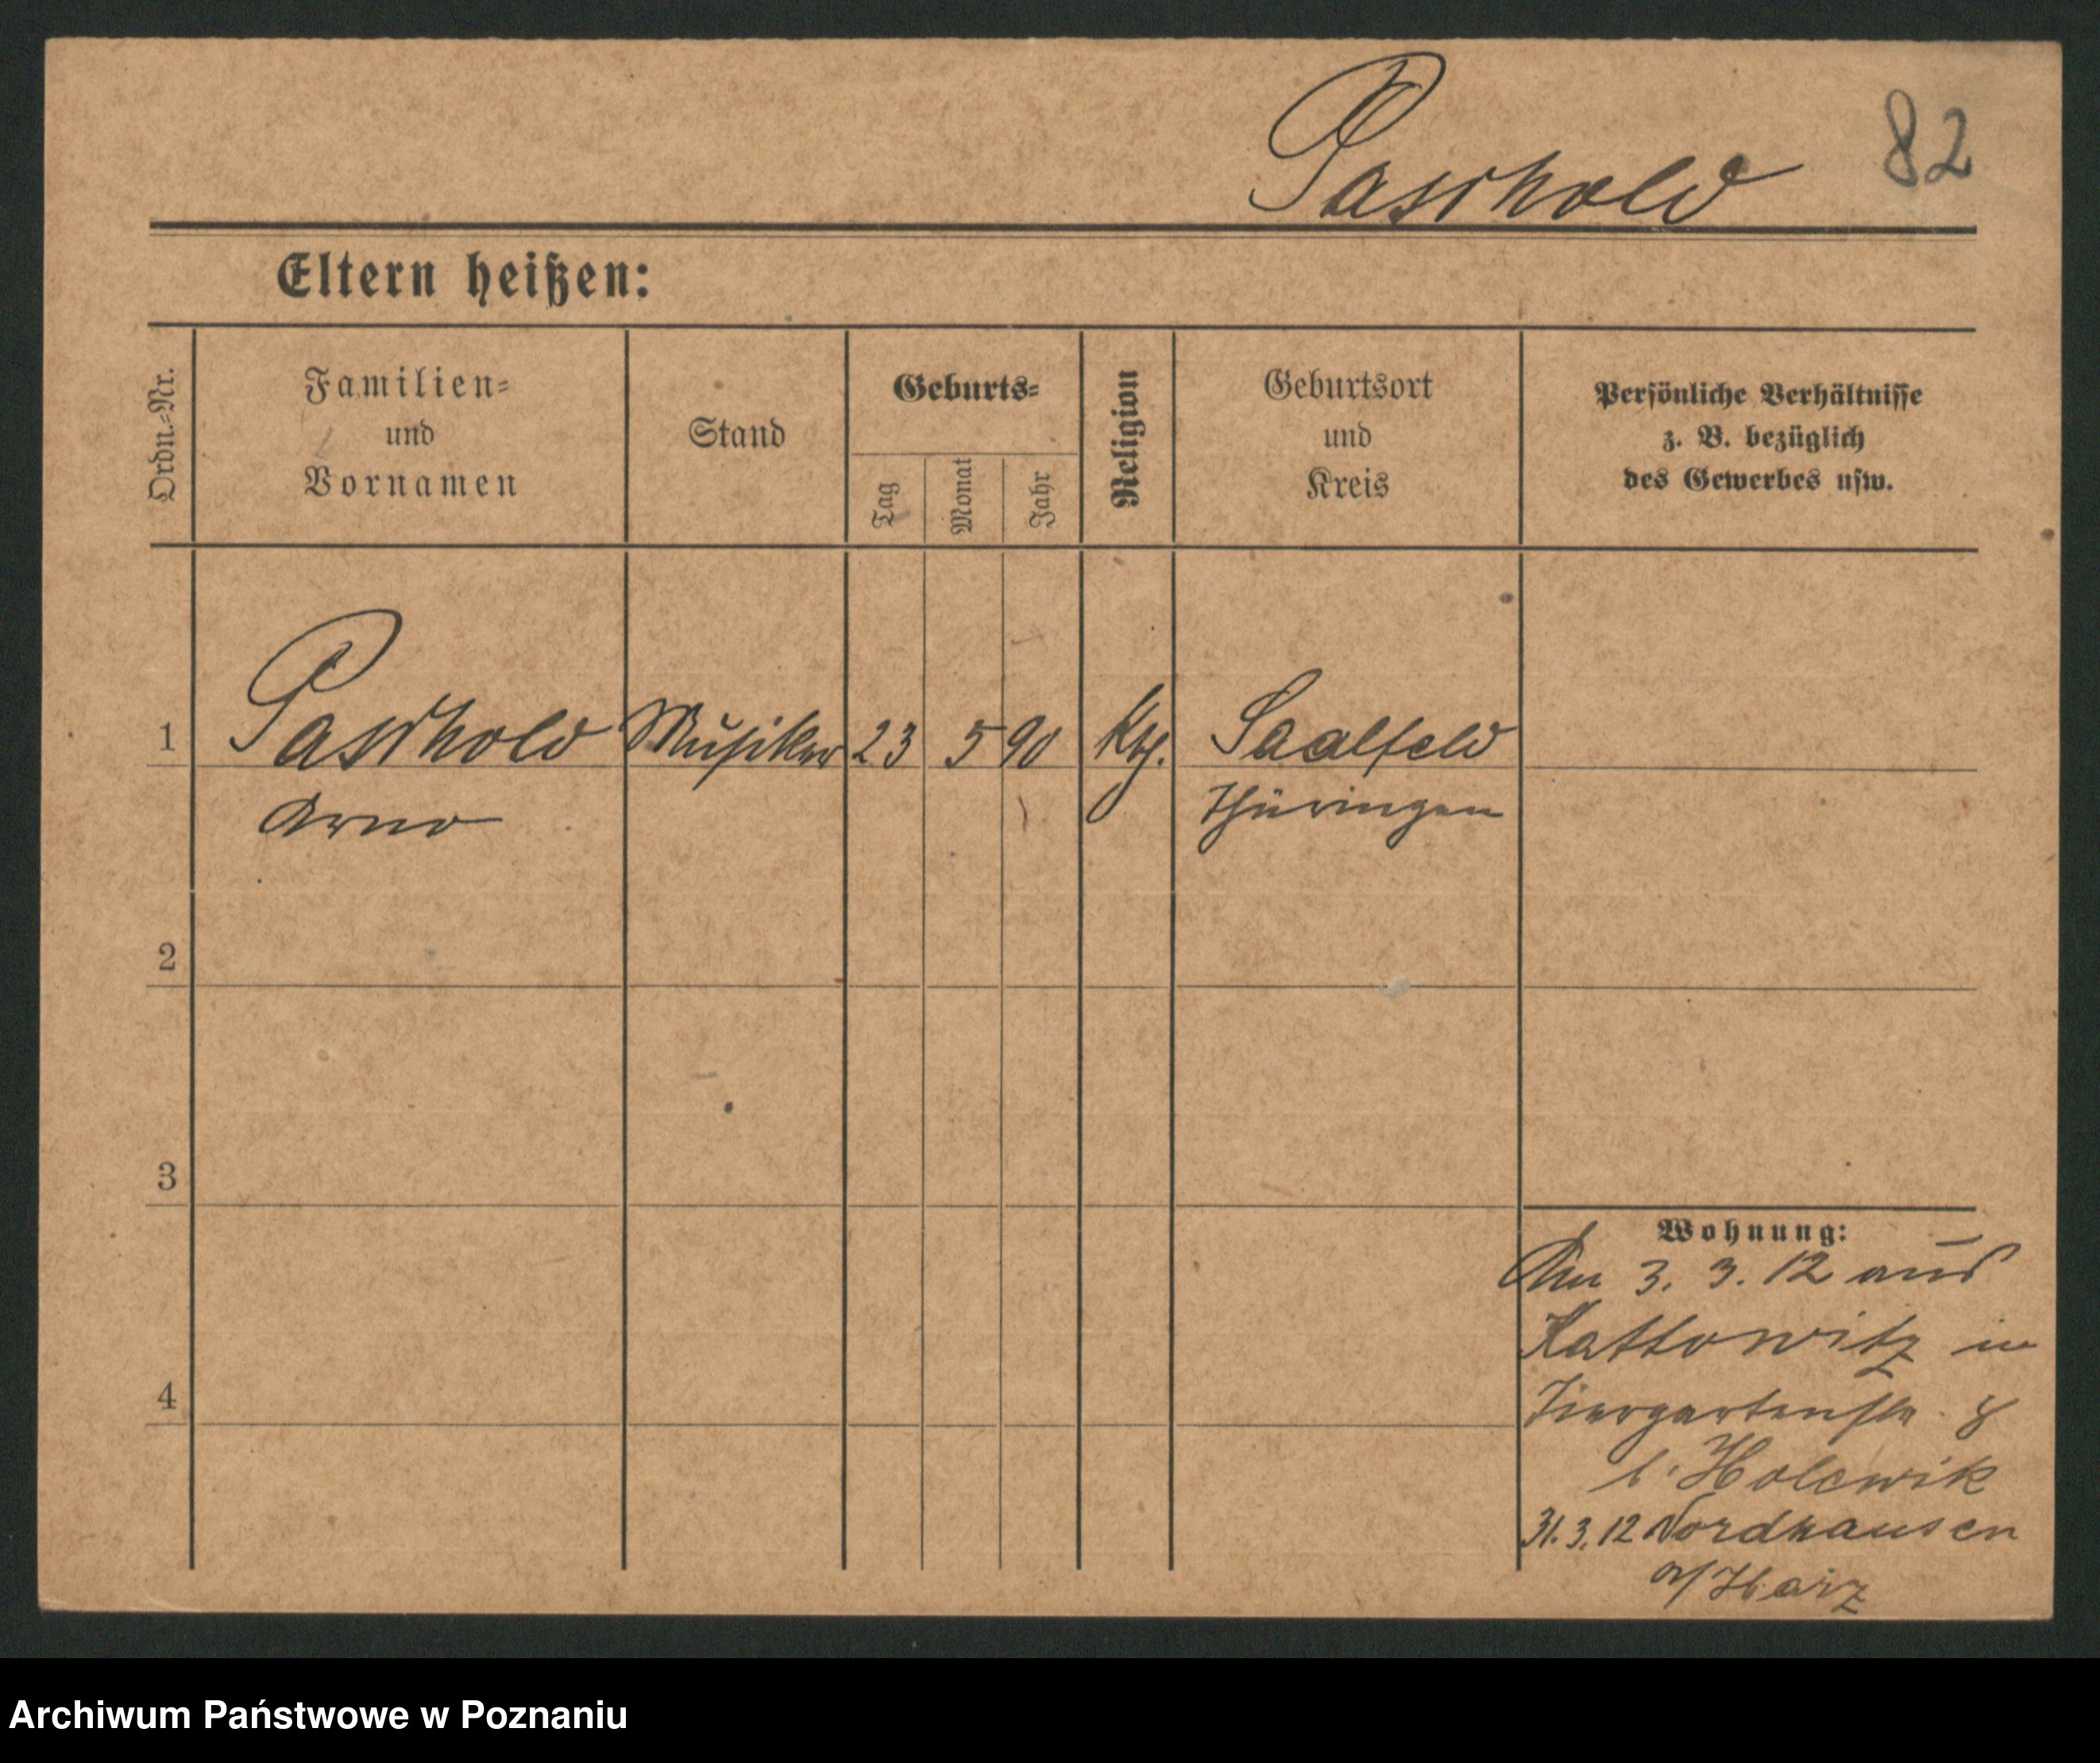 Paschold 82
Eltern heißen:
Ordn.=Nr.
Familien=
und
Vornamen
Stand
Geburts=
Tag
Monat
Jahr
Religion
Geburtsort
und
Kreis
Persönliche Verhältnisse
z. B. bezüglich
des Gewerbes usw.
1 Paschold Musiker 23 5 90 Kth. Saalfeld
Arno Thüringen
2
3
Wohnung:
3. 3. 12 aus
Kattowitz in
4 Tiergartenstr. 8
b. Holcwik
31. 3. 12 Nordhausen
a/Harz
Archiwum Państwowe w Poznaniu